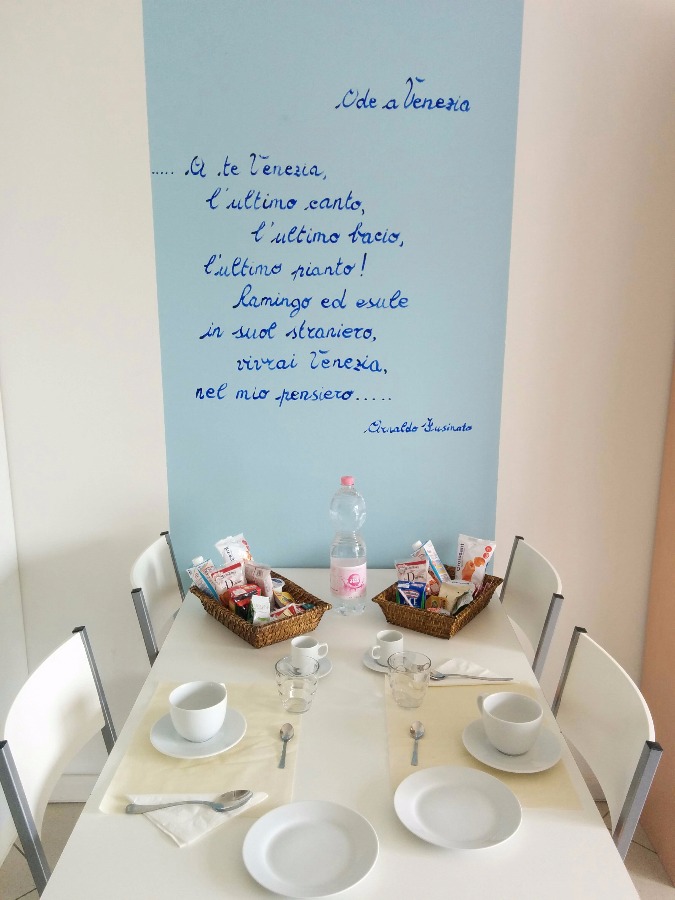 Ode a Venezia
..... A te Venezia,
l'ultimo canto,
l'ultimo bacio,
l'ultimo pianto!
Ramingo ed esule
in suol straniero,
vivrai Venezia,
nel mio pensiero.....
Arnaldo Fusinato